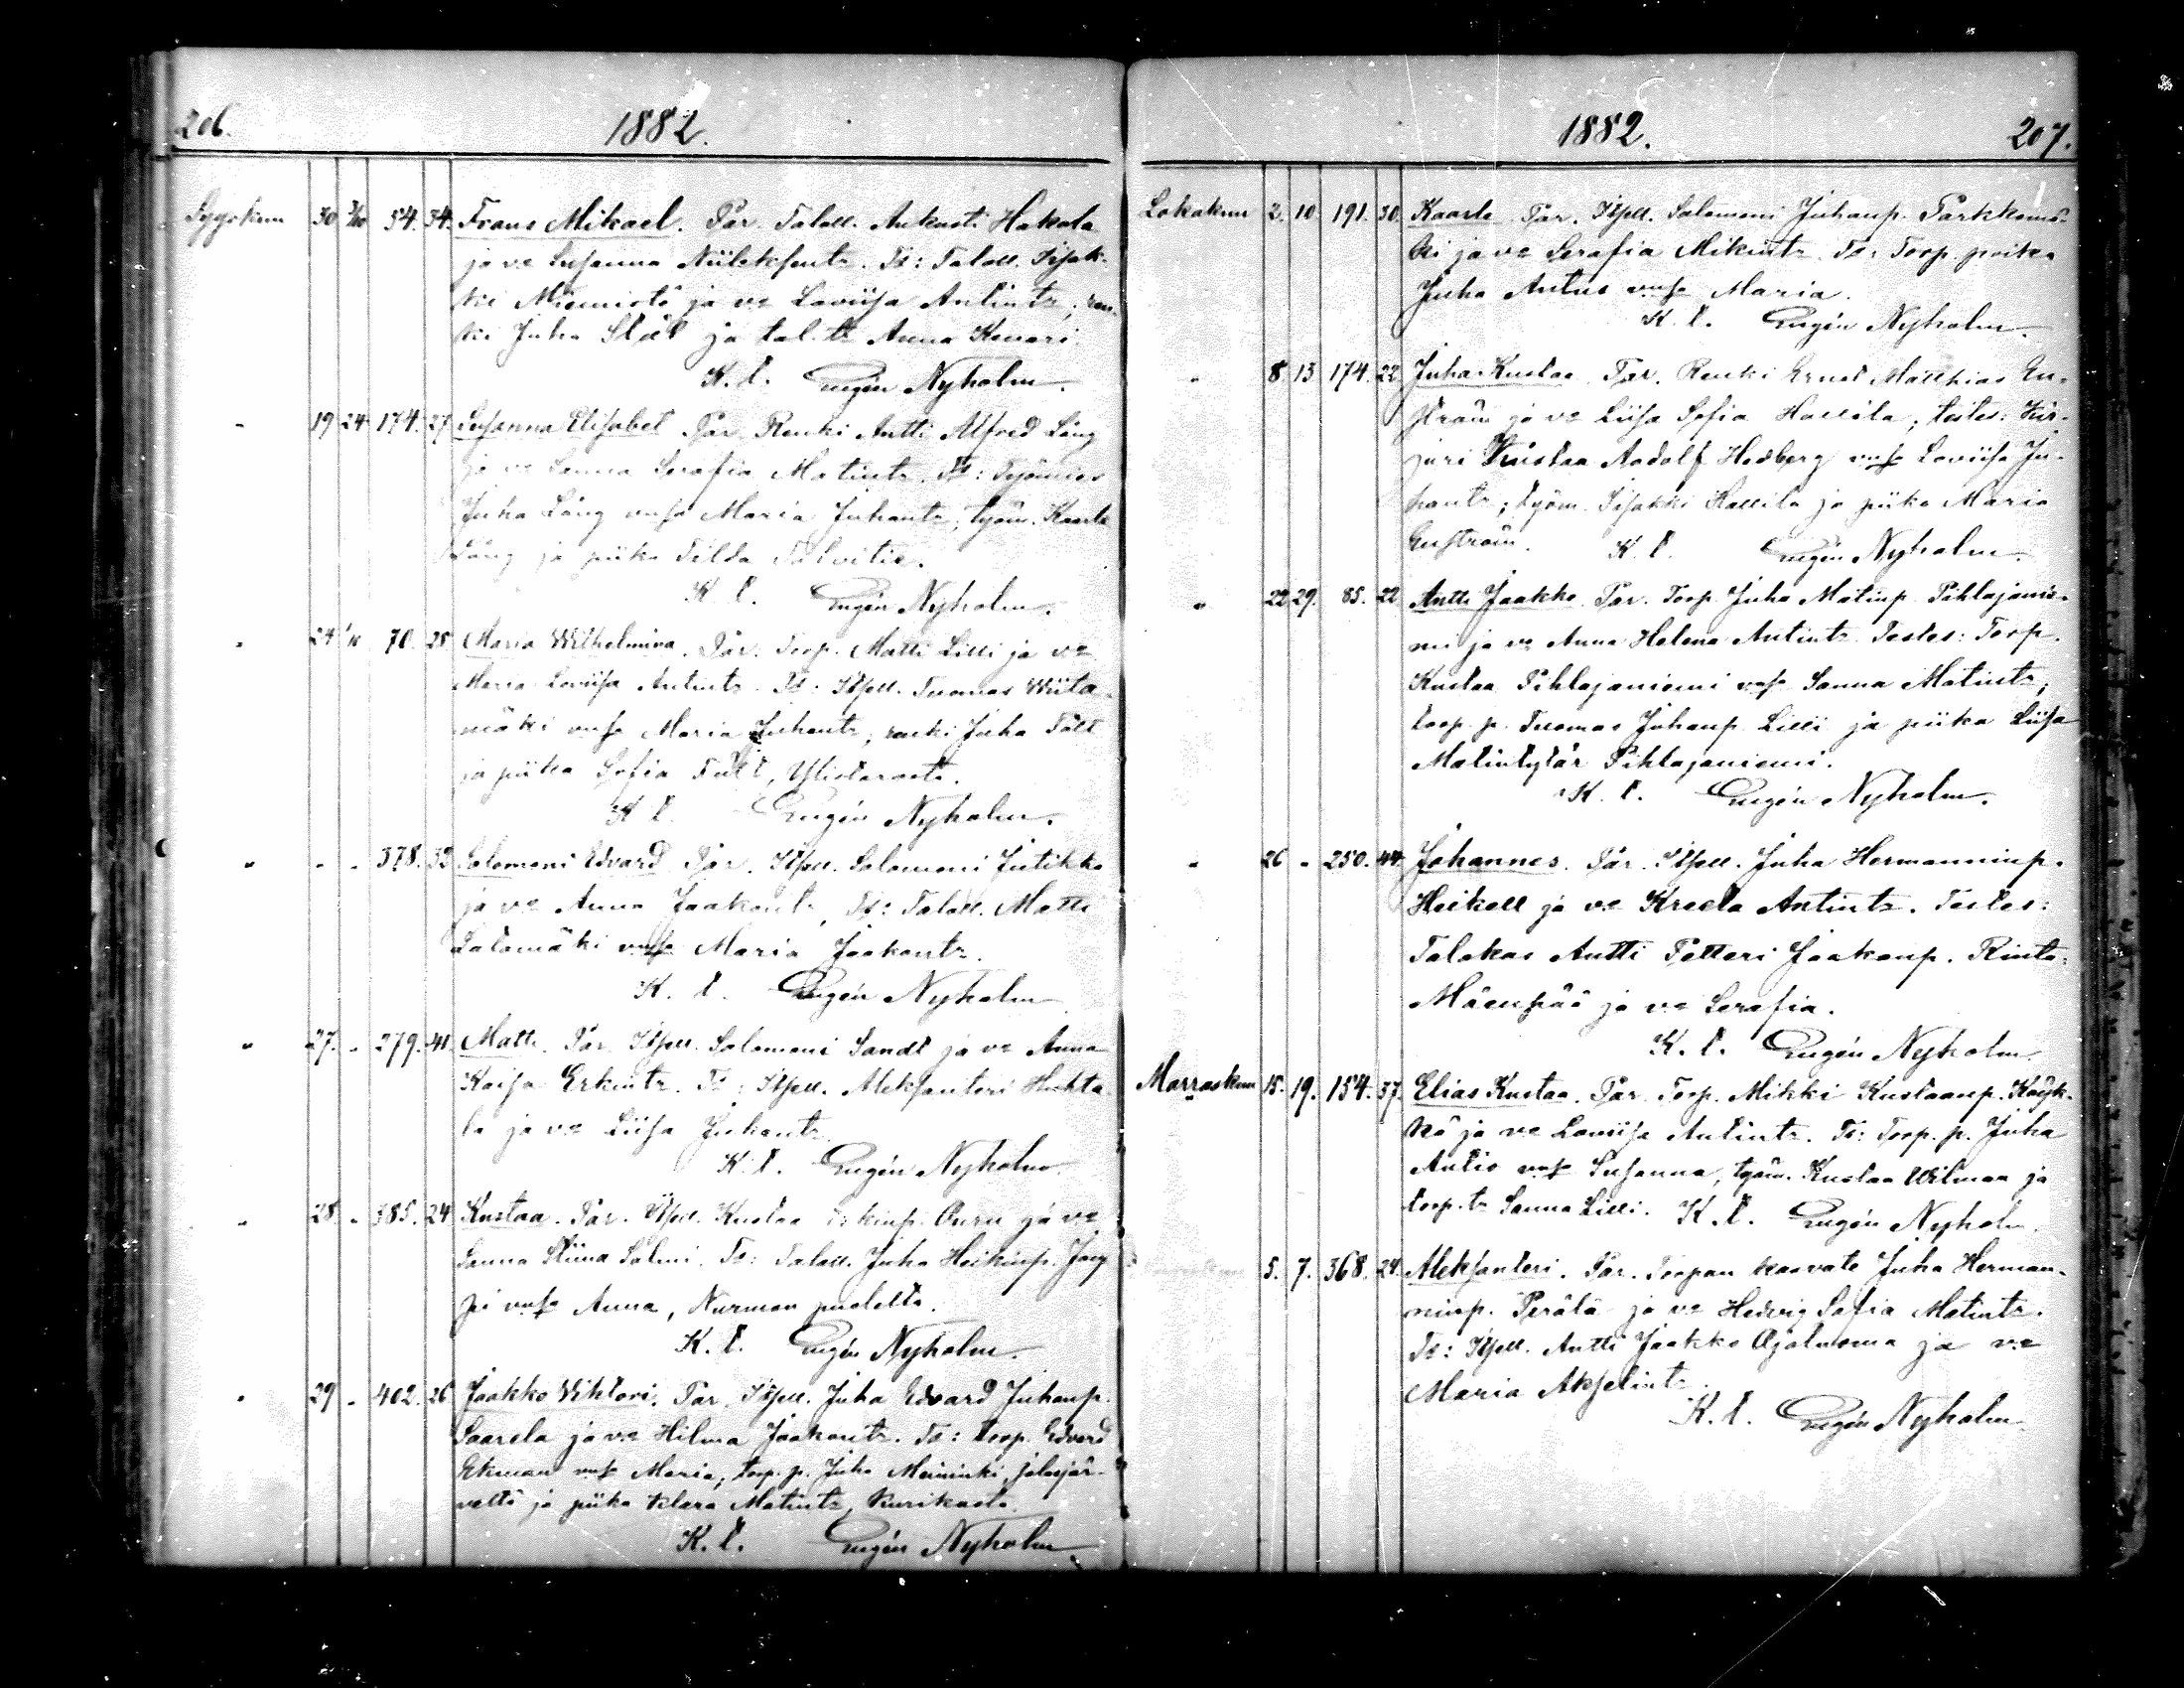 206. 1882.
Syyskuu 30 1/10 54. 34. Frans Mikael. Par. Taloll. Aukusti Hakola
ja vo Susanna Niileksentr. Ts: Taloll. Iisak-
ki Niemistö ja vo Loviisa Antintr; ren-
ki Juha Stål ja tal. tr Anna Kauari
K. t. Eugén Nyholm.
" 19 24 174. 27 Susanna Elisabet Par. Renki Antti Alfred Lång
ja vo Sanna Serafia Matintr. Ts: Työmies
Juha Lång vmsa Maria Juhantr; työm. Kaarle
Lång ja piika Tilda Talvitie.
K. t. Eugén Nyholm.
" 24 1/10 70. 28 Maria Wilhelmina. Par. Torp. Matti Lilli ja vo
Maria Loviisa Antintr. Ts: Itsell. Tuomas Wiita-
mäki vmsa Maria Juhantr, renki Juha Fält
ja piika Sofia Fält, Ylistarosta.
K. t. Eugén Nyholm.
" - - 378. 32 Salomoni Edvard Par. Itsell. Salomoni Jutikko
ja vo Anna Jaakontr, Ts: Taloll. Matti
Latomäki vmsa Maria Jaakontr.
K. t. Eugén Nyholm
" 27. - 279. 41. Matti. Par. Itsell. Salomoni Sandt ja vo Anna
Kaisa Erkintr. Ts: Itsell. Aleksanteri Huhta-
la ja vo Liisa Juhantr
K. t. Eugén Nyholm.
" 28. - 385. 24 Kustaa. Par. Itsell. Kustaa Erkinp. Ouru ja vo
Sanna Stiina Salmi. Ts: Taloll. Juha Heikinp. Jaup
pi vmsa Anna, Nurmon puolelta.
K. t. Eugén Nyholm.
" 29 - 402. 26 Jaakko Wihtori. Par. Itsell. Juha Edvard Juhanp.
Saarela ja vo Hilma Jaakontr. Ts: torp. Edvard
Ekman vmsa Maria; torp. p. Juha Meininki, jalasjär-
veltä ja piika Klara Matintr, Kurikasta.
K. t. Eugén Nyholm
1882. 207.
Lokakuu 2. 10. 191. 30. Kaarle Par. Itsell. Salomoni Juhanp. Parkkomä-
ki ja vo Serafia Mikintr. Ts: Torp. poika
Juha Antus vmsa Maria.
K. t. Eugén Nyholm.
" 8 13 174. 22 Juha Kustaa. Par. Renki Ernst Matthias En-
ström ja vo Liisa Sofia Hallila; testes: Kir-
juri Kustaa Aadolf Hedberg vmsa Loviisa Ju-
hantr; työm. Iisakki Hallila ja piika Maria
Enström. K. t. Eugén Nyholm.
" 22 29. 85. 22 Antti Jaakko. Par. Torp. Juha Matinp. Pihlajanie-
mi ja vo Anna Helena Antintr. Testes: Torp.
Kustaa Pihlajaniemi vmsa Sanna Matintr;
torp. p. Tuomas Juhanp. Lilli ja piika Liisa
Matintytär Pihlajaniemi.
K. t. Eugén Nyholm.
" 26 - 250. 44. Johannes. Par. Itsell. Juha Hermanninp.
Heikell ja vo Kreeta Antintr. Testes:
Talokas Antti Petteri Jaakonp. Rinta-
Mäenpää ja vo Serafia.
K. t. Eugén Nyholm
Marraskuu 15. 19. 154. 37. Elias Kustaa. Par. Torp. Mikki Kustaanp. Kayk-
kö ja vo Loviisa Antintr. Ts: Torp. p. Juha
Antio vmsa Susanna, työm. Kustaa Wilman ja
torp. tr Sanna Lilli. K. t. Eugén Nyholm.
5. 7. 368. 24. Aleksanteri. Par. Torpan kasvate Juha Herman-
ninp. Perälä ja vo Hedvig Sofia Matintr.
Ts: Itsell. Antti Jaakko Ajaluoma ja vo
Maria Akselintr.
K. t. Eugén Nyholm